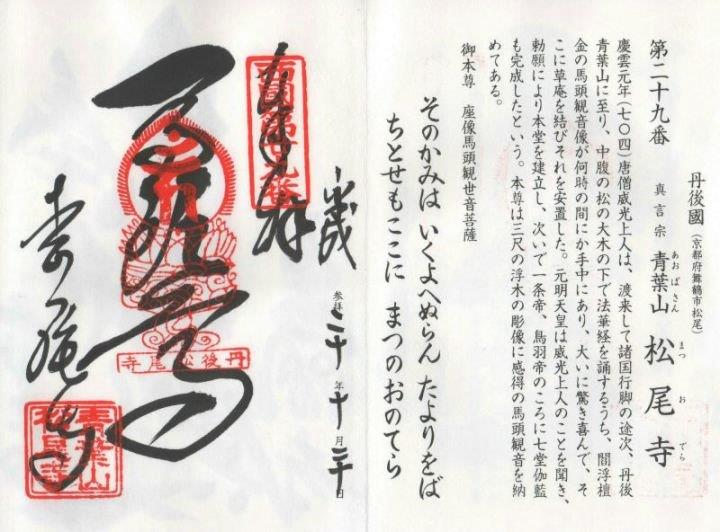 丹後國（京都府舞鶴市松尾）
第二十九番　真言宗　青葉山　松尾寺
あおばさん　まつ　お　でら
慶雲元年(七〇四)唐僧威光上人は、渡来して諸国行脚の途次、丹後
青葉山に至り、中腹の松の大木の下で法華経を誦するうち、閻浮檀
金の馬頭観音像が何時の間にか手中にあり、大いに驚き喜んで、そ
こに草庵を結びそれを安置した。元明天皇は威光上人のことを聞き、
勅願により本堂を建立し、次いで一条帝、鳥羽帝のころに七堂伽藍
も完成したという。本尊は三尺の浮木の彫像に感得の馬頭観音を納
めてある。
御本尊　座像馬頭観世音菩薩
そのかみは　いくよへぬらん　たよりをば
ちとせもここに　まつのおのてら
平成
参拝　二十年十月二十日
奉拝
西國第廿九番
丹後松尾寺
松尾寺
青葉山